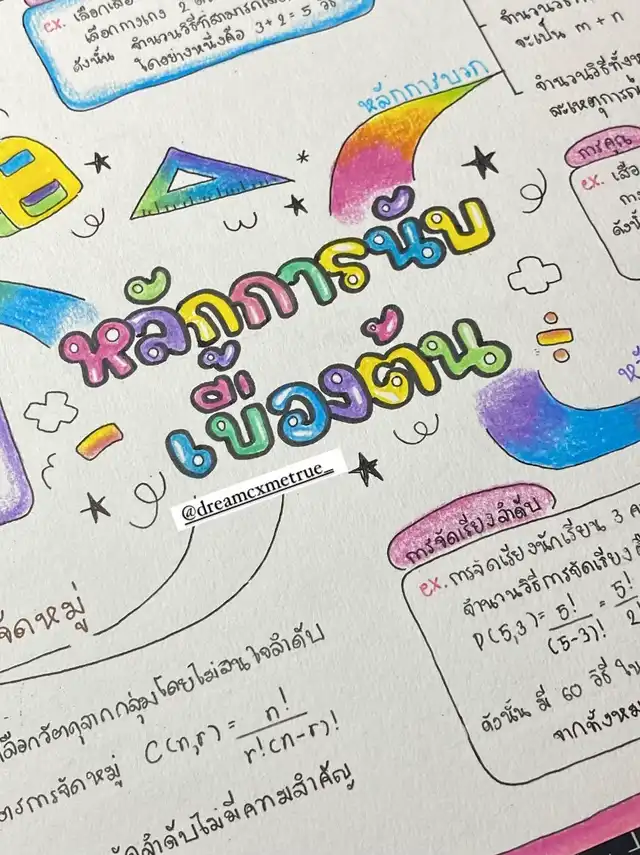 ex. เลือกเสื้อ
เลือกกางเกง 2
ดังนั้น จำนวนวิธีที่สามารถ
ใดอย่างหนึ่งคือ 3+2 = 5 วิธี
จำนวนวิธี
จะเป็น m + n
จำนวนวิธีทั้ง
หลักการบวก
การคูณ
ex. เสื้อ
กา
ดังนั้น
หลักการนับ
เบื้องต้น
@dreamcxmetrue_
การจัดเรียงลำดับ
ex. การจัดเรียงนักเรียน 3 ค
จำนวนวิธีการจัดเรียง คื
P(5,3) = 5!/(5-3)! = 5!/2
ดังนั้น มี 60 วิธี ใน
จากทั้งหม
จัดหมู่
เลือกวัตถุจากกลุ่มโดยไม่สนใจลำดับ
ตรการจัดหมู่ C(n,r) = n!/r!(n-r)!
ลำดับไม่มีความสำคัญ